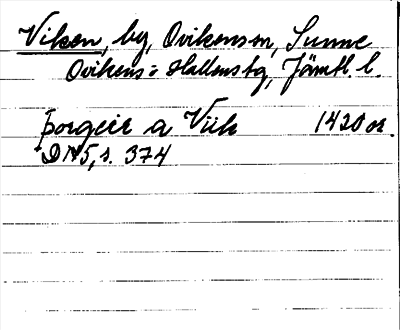 Viken, by, Ovikens sn, Sunne
Ovikens o Hallens tg, Jämtl. l.
þorgeir a Viik 1420 or.
DN 5, s. 374